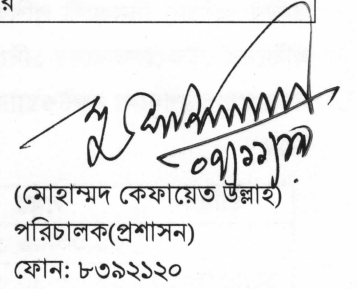 ০৭/১১/১৯
(মোহাম্মদ কেফায়েত উল্লাহ)
পরিচালক(প্রশাসন)
ফোন: ৮৩৯২১২০